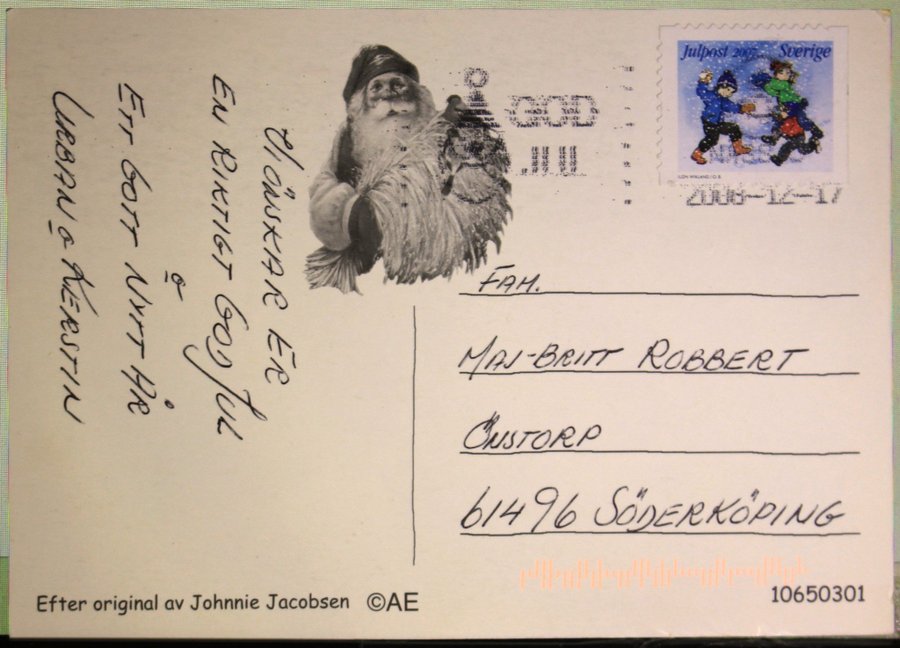 VI ÖNSKAR ER
EN RIKTIGT GOD JUL
o
ETT GOTT NYTT ÅR
URBAN o KERSTIN
GOD
JUL
Julpost 2007 Sverige
2008-12-17
FAM.
MAJ-BRITT ROBBERT
ÖNSTORP
61496 SÖDERKÖPING
Efter original av Johnnie Jacobsen ©AE
10650301